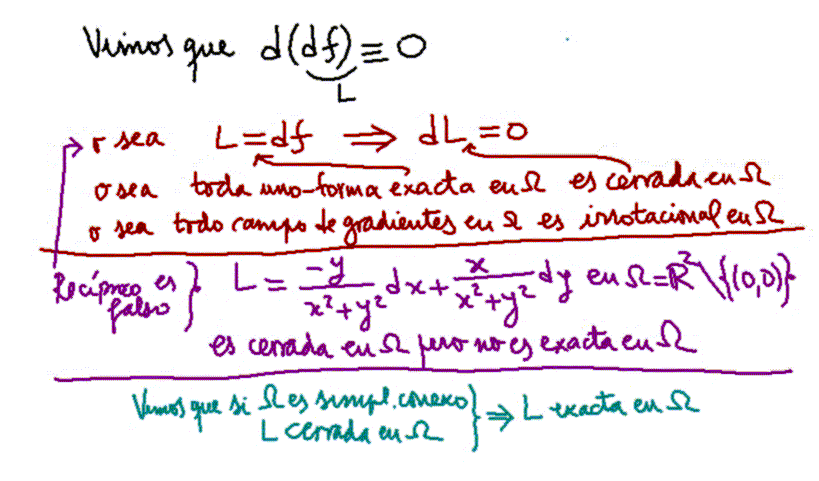 Vimos que d(df) ≡ 0
L
o sea L = df ⇒ dL = 0
o sea toda uno-forma exacta en Ω es cerrada en Ω
o sea todo campo de gradientes en Ω es irrotacional en Ω
Recíproco es falso } L = -y/(x²+y²) dx + x/(x²+y²) dy en Ω = ℝ² \ {(0,0)}
es cerrada en Ω pero no es exacta en Ω
Vimos que si Ω es simpl. conexo
L cerrada en Ω } ⇒ L exacta en Ω